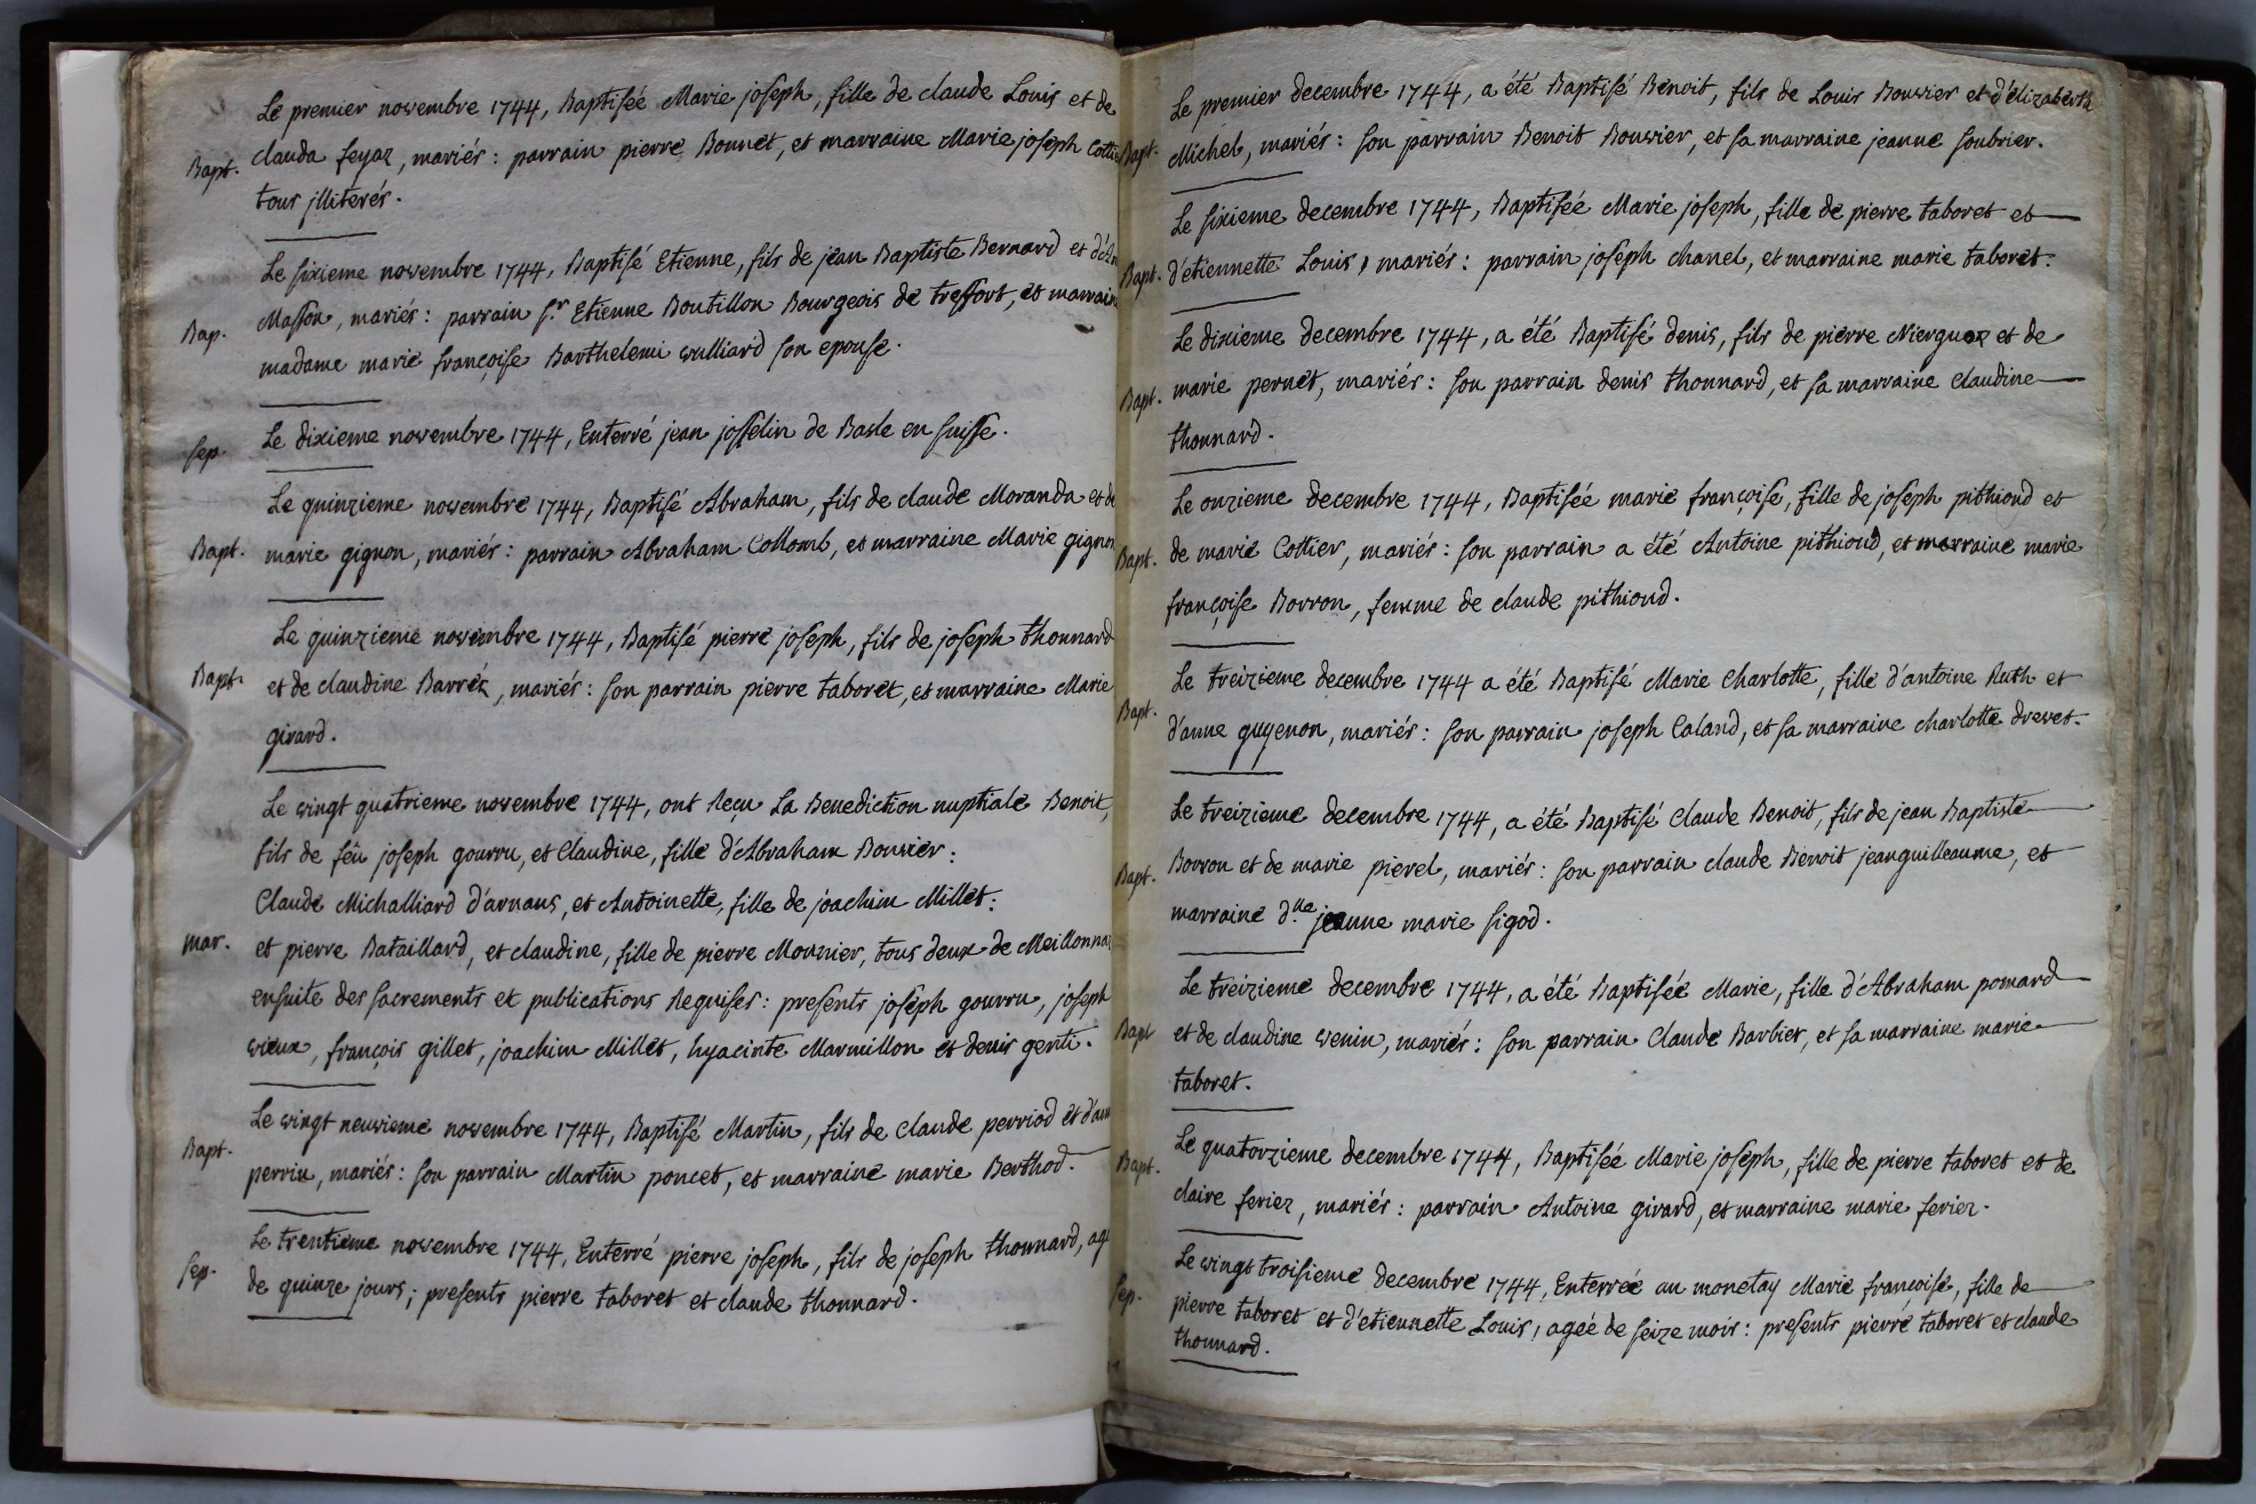 Le premier novembre 1744, Baptisée Marie joseph, fille de claude Louis et de
Bapt. clauda feyaz, mariés : parrain pierre Bonnet, et marraine Marie joseph
tous jlliterés.
Le sixieme novembre 1744, Baptisé Etienne, fils de jean Baptiste Bernard et
Bap. Masson, mariés : parrain s.r Etienne Boutillon Bourgeois de treffort, et marraine
madame marie françoise Barthelemi vulliard son epouse.
Sep. Le dixieme novembre 1744, Enterré jean josselin de Basle en suisse.
Le quinzieme novembre 1744, Baptisé Abraham, fils de claude Moranda et de
Bapt. marie gignon, mariés : parrain Abraham Collomb, et marraine Marie gignon
Le quinzieme novembre 1744, Baptisé pierre joseph, fils de joseph thonnard
Bapt. et de claudine Barrés, mariés : son parrain pierre taboret, et marraine Marie
girard.
Le vingt quatrieme novembre 1744, ont Reçu La Benediction nuptiale Benoit,
fils de feû joseph gourru, et Claudine, fille d'Abraham Bouvier :
Claude Michalliard d'arnans, et Antoinette, fille de joachim Millet :
mar. et pierre Bataillard, et claudine, fille de pierre Mounier, tous deux de
ensuite des sacrements et publications Requises : presents joseph gourru, joseph
vieux, françois gillet, joachim Millet, hyacinte Marmillon et denis genti.
Le vingt neuvieme novembre 1744, Baptisé Martin, fils de claude perriod et
Bapt. perrin, mariés : son parrain Martin poncet, et marraine marie Berthod.
Le trentieme novembre 1744, Enterré pierre joseph, fils de joseph thonnard,
Sep. de quinze jours ; presents pierre taboret et claude thonnard.
Le premier decembre 1744, a été Baptisé Benoit, fils de Louis Bouvier et d'élizabeth
Bapt. Michel, mariés : son parrain Benoit Bouvier, et sa marraine jeanne soubrier.
Le sixieme decembre 1744, Baptisée Marie joseph, fille de pierre taboret et
Bapt. d'étiennette Louis, mariés : parrain joseph chanel, et marraine marie taboret.
Le dixieme decembre 1744, a été Baptisé denis, fils de pierre Nierguoz et de
Bapt. marie pernet, mariés : son parrain denis thonnard, et sa marraine claudine
thonnard.
Le onzieme decembre 1744, Baptisée marie françoise, fille de joseph pithioud et
Bapt. de marie Cottier, mariés : son parrain a été Antoine pithioud, et marraine marie
françoise Borron, femme de claude pithioud.
Le treizieme decembre 1744 a été Baptisé Marie Charlotte, fille d'antoine Ruth et
Bapt. d'anne guyenon, mariés : son parrain joseph Caland, et sa marraine charlotte drevet.
Le treizieme decembre 1744, a été Baptisé Claude Benoit, fils de jean Baptiste
Bapt. Borron et de marie pierel, mariés : son parrain claude Benoit jeanguilleaume, et
marraine d.lle jeanne marie sigod.
Le treizieme decembre 1744, a été Baptisée Marie, fille d'Abraham pomard
Bapt et de claudine venin, mariés : son parrain Claude Barbier, et sa marraine marie
taboret.
Le quatorzieme decembre 1744, Baptisée Marie joseph, fille de pierre taboret et de
Bapt. claire ferier, mariés : parrain Antoine girard, et marraine marie ferier.
Le vingt troisieme decembre 1744, Enterrée au monetay Marie françoise, fille de
Sep. pierre taboret et d'etiennette Louis, agée de seize mois : presents pierre taboret et claude
thonnard.